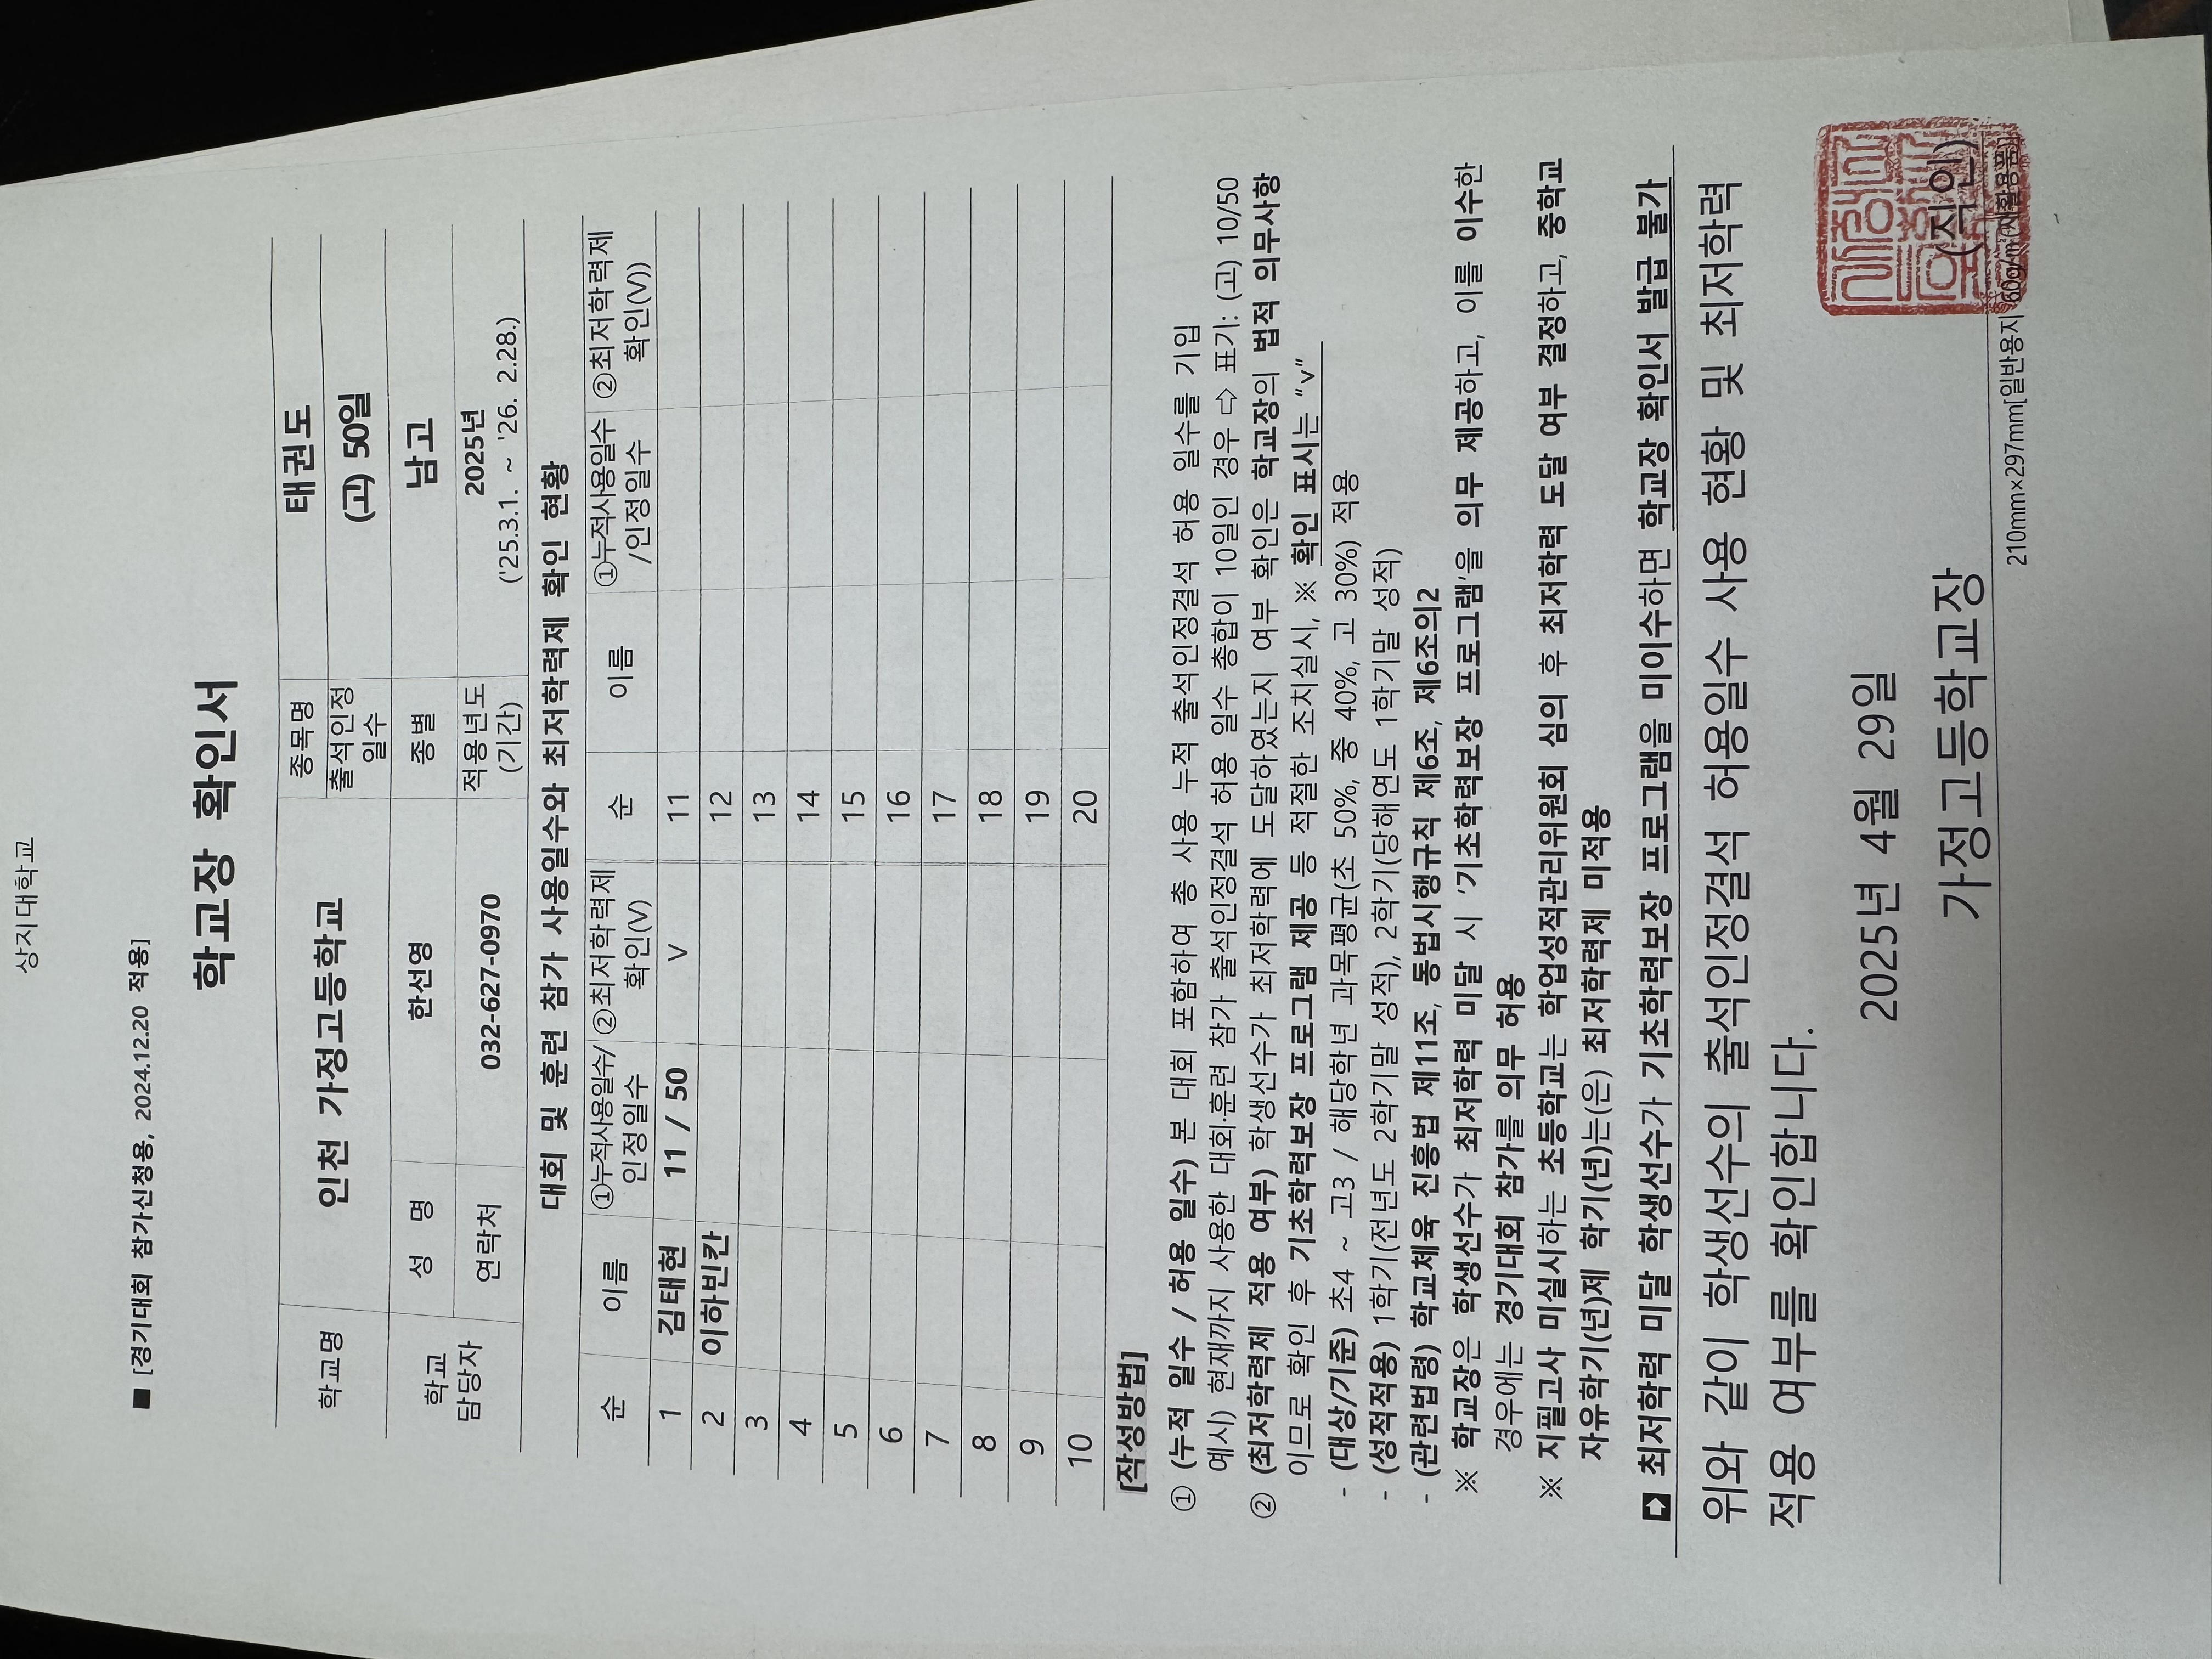 상지대학교
■ [경기대회 참가신청용, 2024.12.20 적용]
학교장 확인서
학교명 인천 가정고등학교 종목명 태권도
출석인정 일수 (고) 50일
학교 담당자 성 명 한선영 종별 남고
연락처 032-627-0970 적용년도 (기간) 2025년 ('25.3.1. ~ '26. 2.28.)
대회 및 훈련 참가 사용일수와 최저학력제 확인 현황
순 이름 ①누적사용일수/인정일수 ②최저학력제 확인(V) 순 이름 ①누적사용일수/인정일수 ②최저학력제 확인(V))
1 김태현 11 / 50 V 11
2 이하빈칸 12
3 13
4 14
5 15
6 16
7 17
8 18
9 19
10 20
[작성방법]
① (누적 일수 / 허용 일수) 본 대회 포함하여 총 사용 누적 출석인정결석 허용 일수를 기입
예시) 현재까지 사용한 대회·훈련 참가 출석인정결석 허용 일수 총합이 10일인 경우 ⇨ 표기: (고) 10/50
② (최저학력제 적용 여부) 학생선수가 최저학력에 도달하였는지 여부 확인은 학교장의 법적 의무사항
이므로 확인 후 기초학력보장 프로그램 제공 등 적절한 조치실시, ※ 확인 표시는 “v”
- (대상/기준) 초4 ~ 고3 / 해당학년 과목평균(초 50%, 중 40%, 고 30%) 적용
- (성적적용) 1학기(전년도 2학기말 성적), 2학기(당해연도 1학기말 성적)
- (관련법령) 학교체육 진흥법 제11조, 동법시행규칙 제6조, 제6조의2
※ 학교장은 학생선수가 최저학력 미달 시 '기초학력보장 프로그램'을 의무 제공하고, 이를 이수한
경우에는 경기대회 참가를 의무 허용
※ 지필고사 미실시하는 초등학교는 학업성적관리위원회 심의 후 최저학력 도달 여부 결정하고, 중학교
자유학기(년)제 학기(년)는(은) 최저학력제 미적용
➡ 최저학력 미달 학생선수가 기초학력보장 프로그램을 미이수하면 학교장 확인서 발급 불가
위와 같이 학생선수의 출석인정결석 허용일수 사용 현황 및 최저학력
적용 여부를 확인합니다.
2025년 4월 29일
가정고등학교장 (직인)
210mm×297mm[일반용지 60g/㎡(재활용품)]